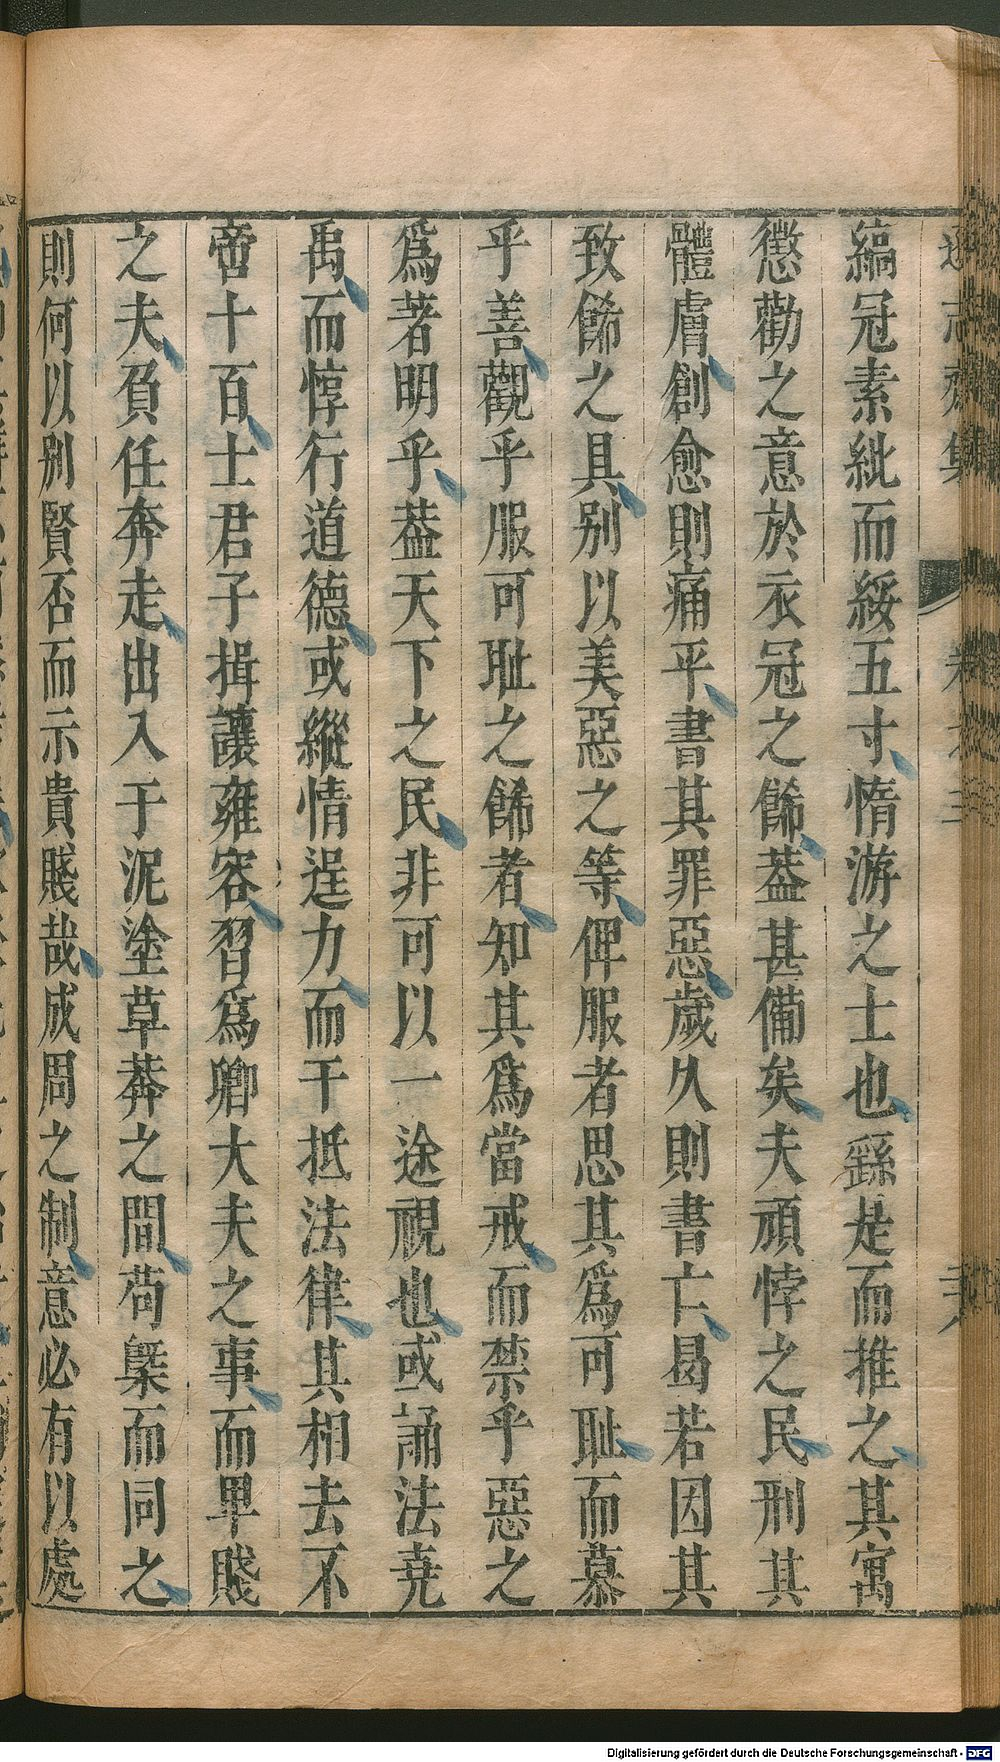 縞冠素紕而綏五寸惰游之士也繇是而推之其寓
懲勸之意於衣冠之餙葢甚備矣夫頑悖之民刑其
體膚創愈則痛平書其罪惡歲久則書亡曷若因其
致餙之具别以美惡之等俾服者思其爲可耻而慕
乎善觀乎服可耻之餙者知其爲當戒而禁乎惡之
爲著明乎葢天下之民非可以一途視也或誦法堯
禹而惇行道德或縱情逞力而干抵法律其相去不
啻十百士君子揖讓雍容習爲卿大夫之事而卑賤
之夫負任奔走出入于泥塗草莽之間苟槩而同之
則何以别賢否而示貴賤哉成周之制意必有以處
Digitalisierung gefördert durch die Deutsche Forschungsgemeinschaft - DFG